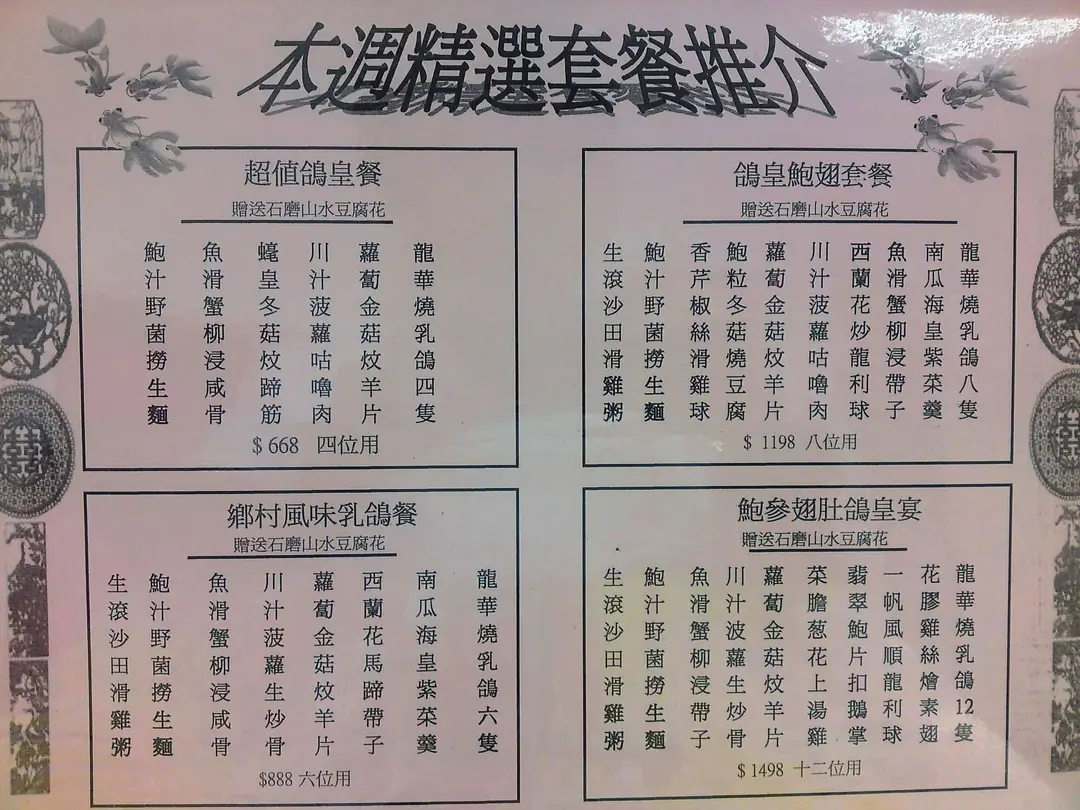 本週精選套餐推介
超值鴿皇餐
贈送石磨山水豆腐花
龍華燒乳鴿四隻
蘿蔔金菇炆羊片
川汁菠蘿咕嚕肉
蠔皇冬菇炆蹄筋
魚滑蟹柳浸咸骨
鮑汁野菌撈生麵
$668 四位用
鴿皇鮑翅套餐
贈送石磨山水豆腐花
龍華燒乳鴿八隻
南瓜海皇紫菜羹
魚滑蟹柳浸帶子
西蘭花炒龍利球
川汁菠蘿咕嚕肉
蘿蔔金菇炆羊片
鮑粒冬菇燒豆腐
香芹椒絲滑雞球
鮑汁野菌撈生麵
生滾沙田滑雞粥
$ 1198 八位用
鄉村風味乳鴿餐
贈送石磨山水豆腐花
龍華燒乳鴿六隻
南瓜海皇紫菜羹
西蘭花馬蹄帶子
蘿蔔金菇炆羊片
川汁菠蘿生炒骨
魚滑蟹柳浸咸骨
鮑汁野菌撈生麵
生滾沙田滑雞粥
$888 六位用
鮑參翅肚鴿皇宴
贈送石磨山水豆腐花
龍華燒乳鴿12隻
花膠雞絲燴素翅
一帆風順龍利球
翡翠鮑片扣鵝掌
菜膽葱花上湯雞
蘿蔔金菇炆羊片
川汁波蘿生炒骨
魚滑蟹柳浸帶子
鮑汁野菌撈生麵
生滾沙田滑雞粥
$ 1498 十二位用